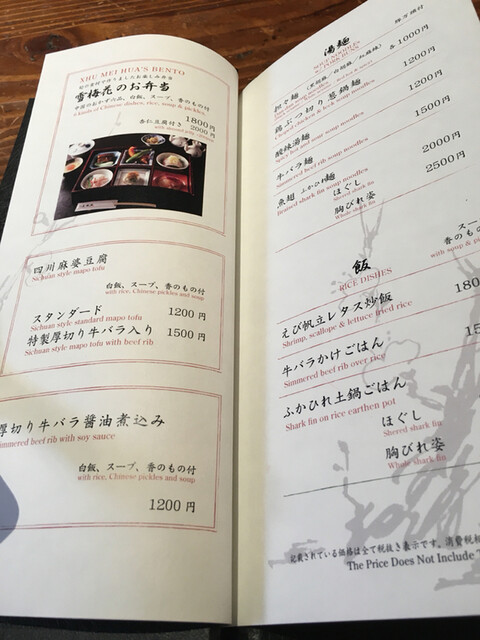 XHU MEI HUA'S BENTO
旬の食材で作りましたお楽しみ弁当
雪梅花のお弁当
中国のおかず六品、白飯、スープ、香のもの付
6 kinds of Chinese dishes, rice, soup & pickles
1800円
杏仁豆腐付き 2000円
四川麻婆豆腐
Sichuan style mapo tofu
白飯、スープ、香のもの付
with rice, Chinese pickles and soup
スタンダード 1200円
Sichuan style standard mapo tofu
特製厚切り牛バラ入り 1500円
Sichuan style mapo tofu with beef rib
厚切り牛バラ醤油煮込み
immered beef rib with soy sauce
白飯、スープ、香のもの付
with rice, Chinese pickles and soup
1200円
湯麺
SOUP NOODLES
担々麺 各1000円
鶏ぶつ切り葱鍋麺 1200円
酸辣湯麺 1200円
牛バラ麺 1500円
Simmered beef rib soup noodles
魚翅 ふかひれ麺
Braised shark fin soup noodles
ほぐし 2000円
Shered shark fin
胸びれ姿 2500円
Whole shark fin
飯
RICE DISHES
スー
香のもの
with soup & p
えび帆立レタス炒飯 180
Shrimp, scallops & lettuce fried rice
牛バラかけごはん 15
Simmered beef rib over rice
ふかひれ土鍋ごはん
Shark fin on rice earthen pot
ほぐし
Shered shark fin
胸びれ姿
Whole shark fin
記載されている価格は全て税抜き表示です。消費税相
The Price Does Not Include